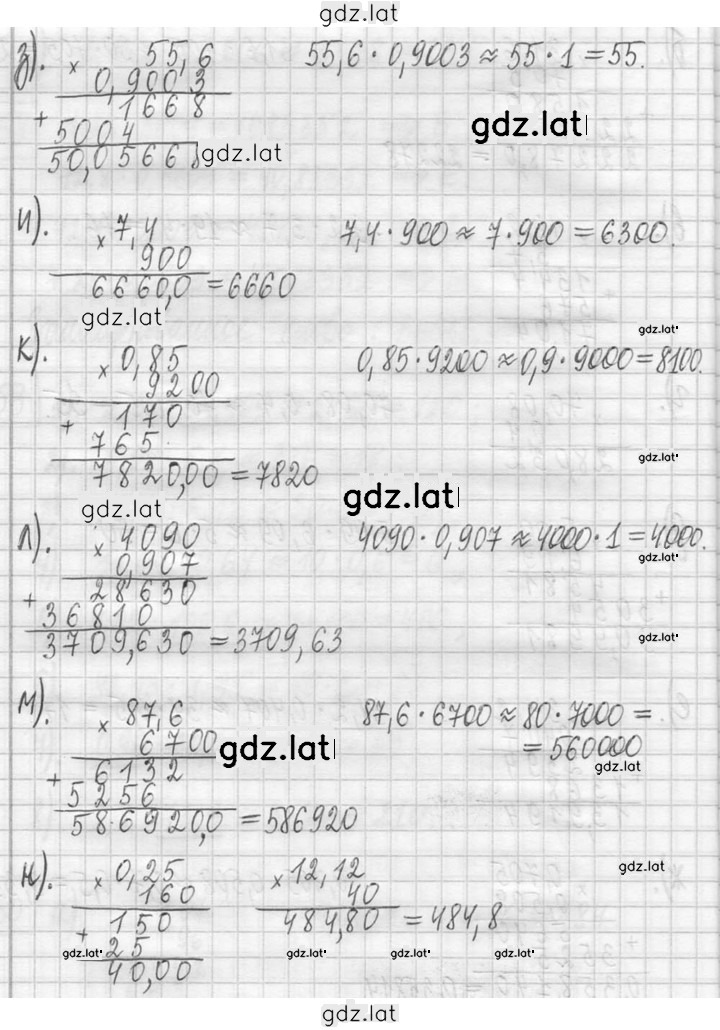 gdz.lat
з). × 55,6   55,6 · 0,9003 ≈ 55 · 1 = 55.
0,9003
+ 1668   gdz.lat
5004
50,05668 gdz.lat
и). × 7,4   7,4 · 900 ≈ 7 · 900 = 6300.
900
6660,0 = 6660
gdz.lat   gdz.lat
к). × 0,85   0,85 · 9200 ≈ 0,9 · 9000 = 8100.
9200
+ 170
765   gdz.lat
7820,00 = 7820
gdz.lat   gdz.lat
л). × 4090   4090 · 0,907 ≈ 4000 · 1 = 4000.
0,907   gdz.lat
+ 28630
36810
3709,630 = 3709,63   gdz.lat
м). × 87,6   87,6 · 6700 ≈ 80 · 7000 =
6700 gdz.lat   = 560000
+ 6132   gdz.lat
5256
586920,0 = 586920
н). × 0,25   × 12,12   gdz.lat
160   40
+ 150   484,80 = 484,8
gdz.lat 25   gdz.lat   gdz.lat   gdz.lat
40,00
gdz.lat